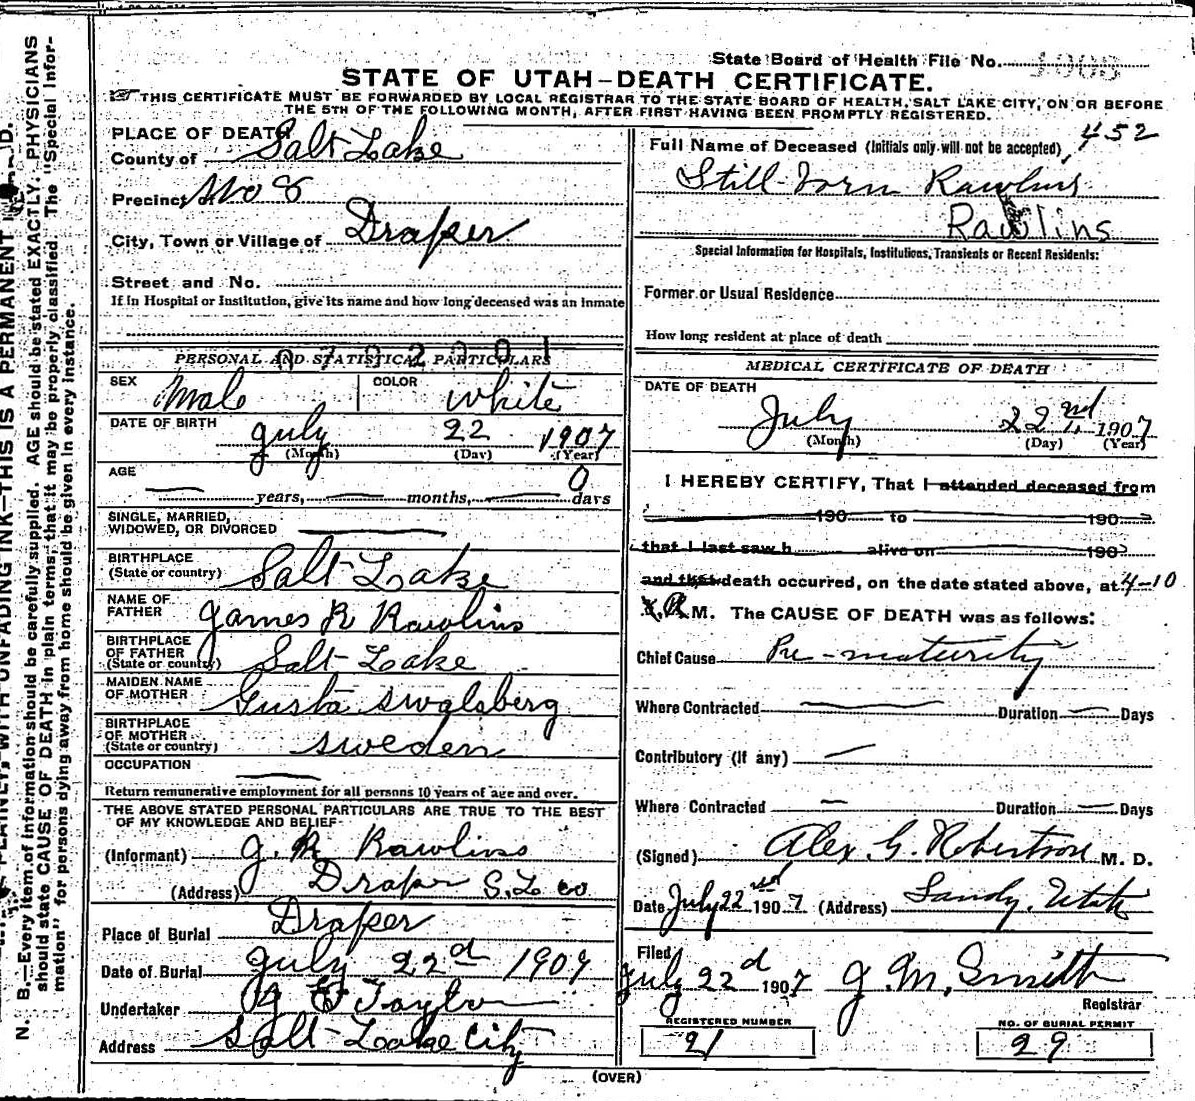 State Board of Health File No. 1008
STATE OF UTAH—DEATH CERTIFICATE.
THIS CERTIFICATE MUST BE FORWARDED BY LOCAL REGISTRAR TO THE STATE BOARD OF HEALTH, SALT LAKE CITY, ON OR BEFORE
THE 5TH OF THE FOLLOWING MONTH, AFTER FIRST HAVING BEEN PROMPTLY REGISTERED.
PLACE OF DEATH
County of Salt Lake
Precinct No 8
City, Town or Village of Draper
Street and No.
If in Hospital or Institution, give its name and how long deceased was an inmate
PERSONAL AND STATISTICAL PARTICULARS
SEX Male COLOR White
DATE OF BIRTH July 22 1907
(Month) (Day) (Year)
AGE 0
years, months, days
SINGLE, MARRIED,
WIDOWED, OR DIVORCED
BIRTHPLACE
(State or country) Salt Lake
NAME OF
FATHER James R Rawlins
BIRTHPLACE
OF FATHER
(State or country) Salt Lake
MAIDEN NAME
OF MOTHER Gusta Swalsberg
BIRTHPLACE
OF MOTHER
(State or country) Sweden
OCCUPATION
Return remunerative employment for all persons 10 years of age and over.
THE ABOVE STATED PERSONAL PARTICULARS ARE TRUE TO THE BEST
OF MY KNOWLEDGE AND BELIEF
(Informant) J. R Rawlins
(Address) Draper S. L. co
Place of Burial Draper
Date of Burial July 22d 1907
Undertaker Taylor
Address Salt Lake City
452
Full Name of Deceased (Initials only will not be accepted)
Still-born Rawlins
Rawlins
Special Information for Hospitals, Institutions, Transients or Recent Residents:
Former or Usual Residence
How long resident at place of death
MEDICAL CERTIFICATE OF DEATH
DATE OF DEATH
July 22nd, 1907
(Month) (Day) (Year)
I HEREBY CERTIFY, That I attended deceased from
190 to 190
that I last saw h alive on 190
and that death occurred, on the date stated above, at 4-10
M. The CAUSE OF DEATH was as follows:
Chief Cause Pre-maturity
Where Contracted Duration Days
Contributory (if any)
Where Contracted Duration Days
(Signed) Alex. G. Robertson M. D.
Date July 22nd 1907 (Address) Sandy, Utah
Filed
July 22d 1907 J. M. Smith
Registrar
REGISTERED NUMBER
21
NO. OF BURIAL PERMIT
29
(OVER)
PLAINLY, WITH UNFADING INK—THIS IS A PERMANENT
N. B.—Every item of information should be carefully supplied. AGE should be stated EXACTLY. PHYSICIANS
should state CAUSE OF DEATH in plain terms, that it may be properly classified. The "Special Infor-
mation" for persons dying away from home should be given in every instance.